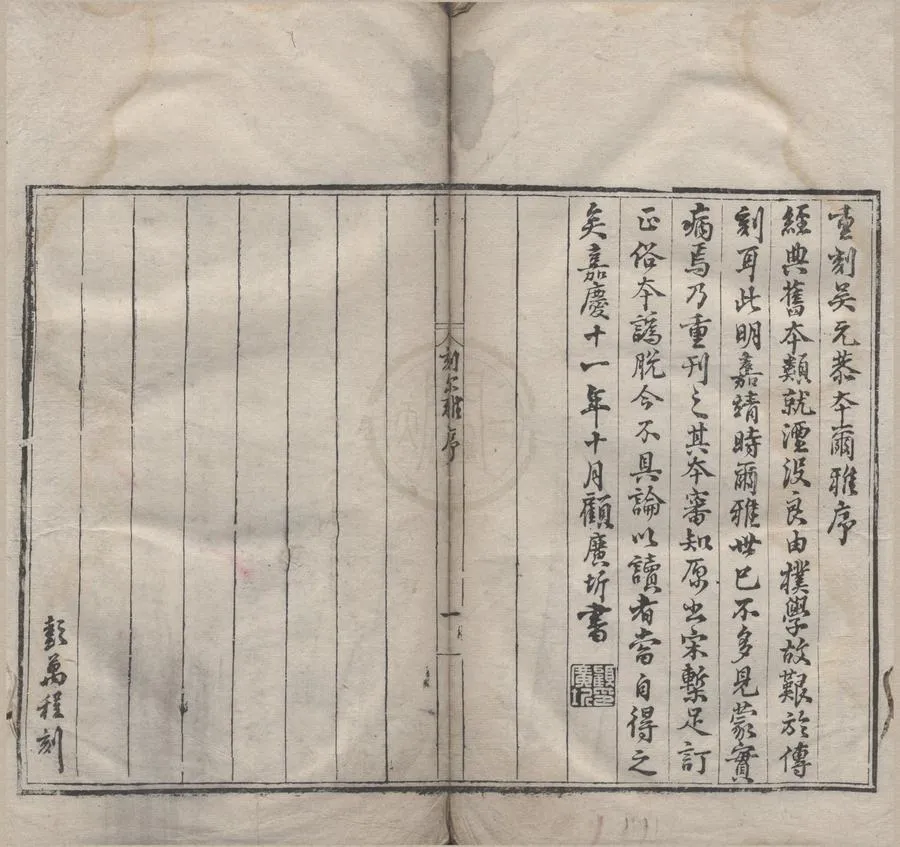 重刻吴元恭本爾雅序
經典舊本類就湮没良由樸學故艱於傳
刻耳此明嘉靖時爾雅世已不多見蒙實
病焉乃重刊之其本審知原出宋槧足訂
正俗本譌脱今不具論以讀者當自得之
矣嘉慶十一年十月顧廣圻書
顧廣圻印
刻尔雅序
一
彭萬程刻